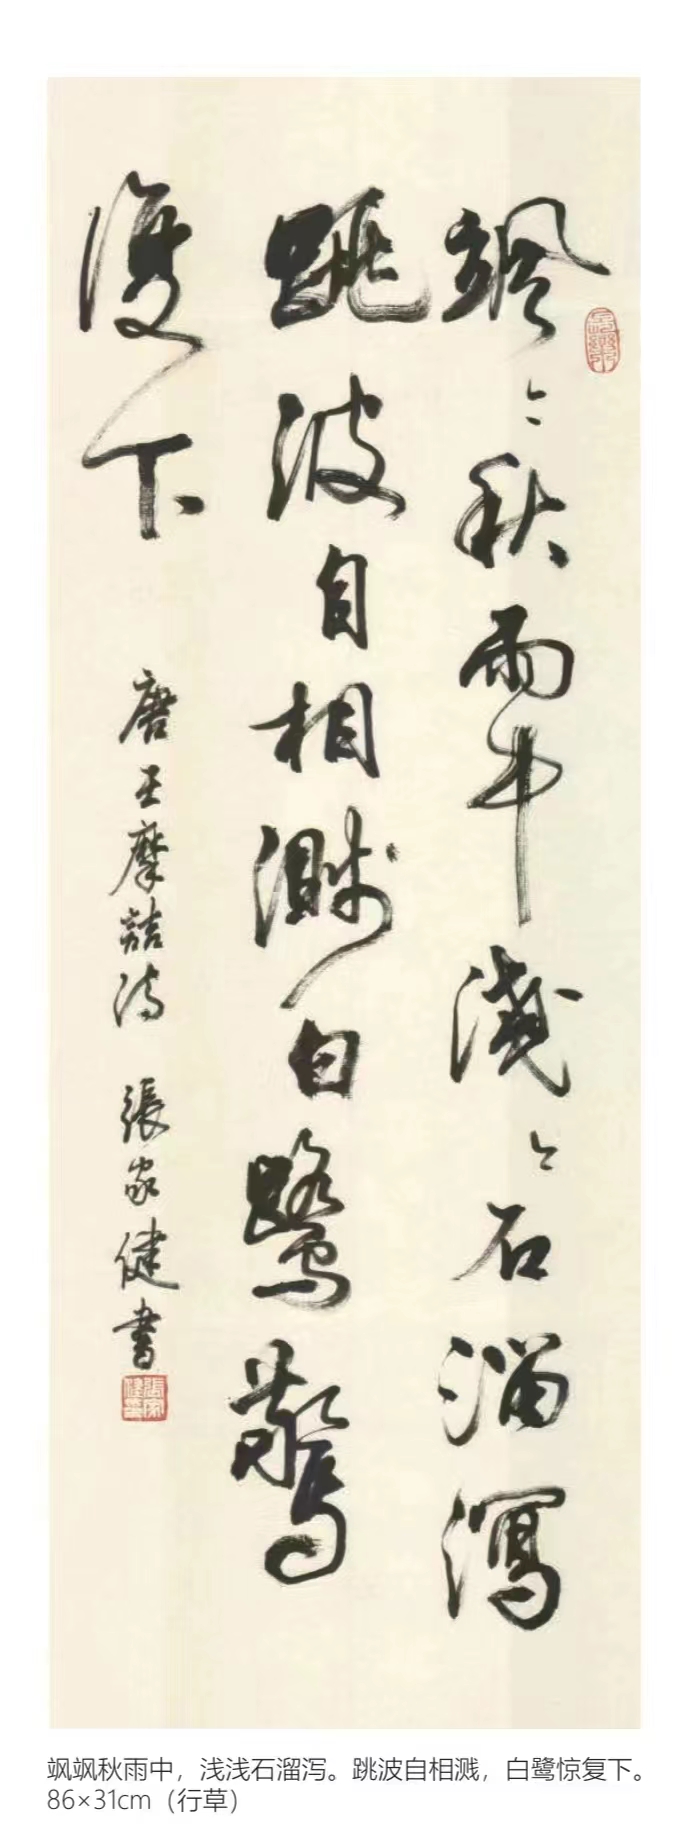 颯〻秋雨中淺〻石溜瀉
跳波自相濺白鷺驚
復下
唐王摩詰詩 張家健書
飒飒秋雨中，浅浅石溜泻。跳波自相溅，白鹭惊复下。
86×31cm（行草）